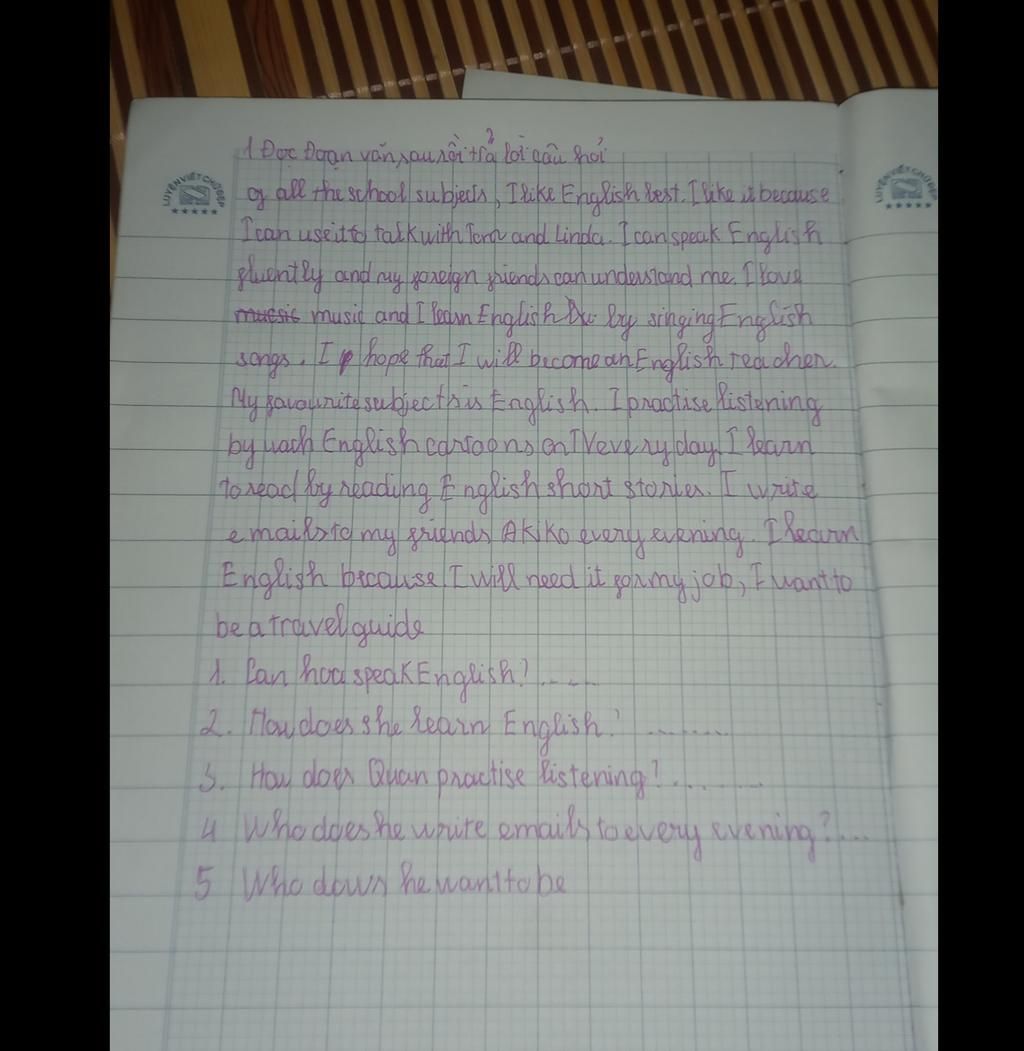 1 Đọc Đoạn văn sau rồi trả lời câu hỏi
LUYỆN VIẾT CHỮ ĐẸP
of all the school subjects, I like English best. I like it because
I can use it to talk with Tom and Linda. I can speak English
fluently and my foreign friends can understand me. I love
music and I learn English by singing English
songs. I hope that I will become an English teacher.
My favourite subject is English. I practise listening
by wach English cartoons on TV every day. I learn
to read by reading English short stories. I write
emails to my friends Akiko every evening. I learn
English because I will need it for my job, I want to
be a travel guide
1. Can hoa speak English? ....
2. How does she learn English? ........
3. How does Quan practise listening? .......
4 Who does he write emails to every evening? ....
5 Who down he want to be